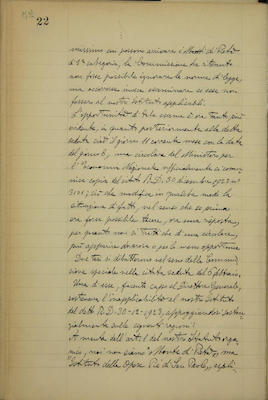 22
massimo cui possono arrivare i Monti di Pietà
di 1ª categoria, la Commissione ha ritenuto
non fosse possibile ignorare le norme di legge,
ma occorresse invece esaminare se esse non
fossero al nostro Istituto applicabili.
L'opportunità di tale esame è ora tanto più
evidente, in quanto posteriormente alla detta
seduta cioè il giorno 11 corrente mese con la data
del giorno 6, una circolare del Ministero per
l'Economia Nazionale ufficialmente ci comu-
nica copia del citato R.D. 30 dicembre 1923 nº
3051; ciò che modifica in qualche modo la
situazione di fatto, nel senso che se prima
era forse possibile tacere, ora una risposta,
per quanto non si tratti che di una circolare,
può apparire doverosa o per lo meno opportuna.
Due tesi si dibatterono nel seno della Commis-
sione speciale nella citata seduta del 6 febbraio.
Una di esse, facente capo al Direttore Generale,
sosteneva l'inapplicabilità al nostro Istituto
del detto R.D. 30-12-1923, appoggiandosi sostan-
zialmente sulle seguenti ragioni:
A mente dell'art. 1 del nostro Statuto orga-
nico, noi non siamo "Monte di Pietà", ma
"Istituto delle Opere Pie di San Paolo,